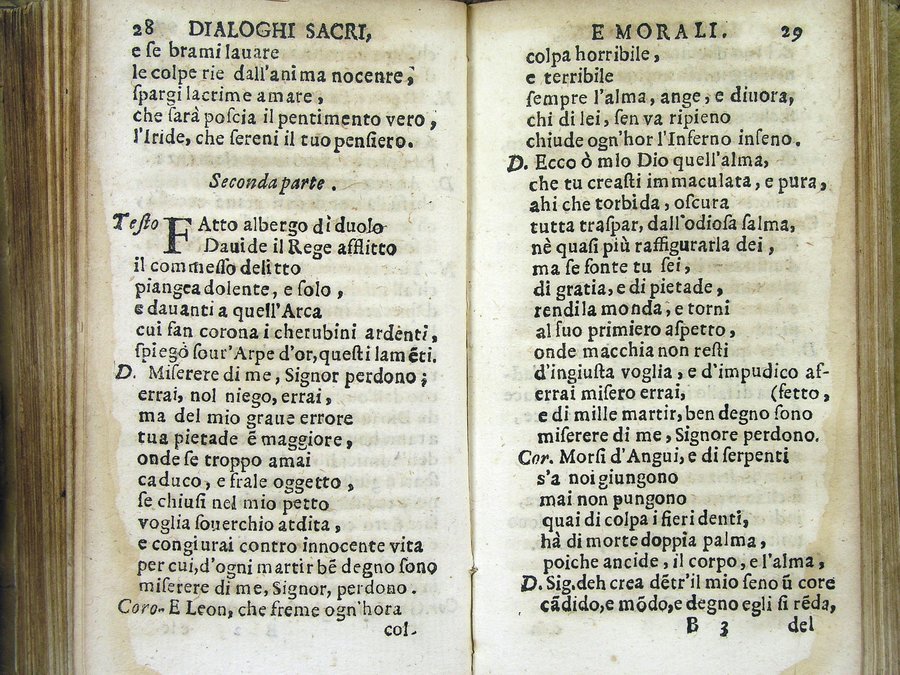 28 DIALOGHI SACRI,
e ſe brami lauare
le colpe rie dall'anima nocenre;
ſpargi lacrime amare,
che ſarà poſcia il pentimento vero,
l'Iride, che ſereni il tuo penſiero.
Seconda parte.
Teſto FAtto albergo di duolo
Dauide il Rege afflitto
il commeſſo delitto
piangea dolente, e ſolo,
e dauanti a quell'Arca
cui fan corona i cherubini ardenti,
ſpiegò ſour'Arpe d'or, queſti lamēti.
D. Miſerere di me, Signor perdono;
errai, nol niego, errai,
ma del mio graue errore
tua pietade ē maggiore,
onde ſe troppo amai
caduco, e frale oggetto,
ſe chiuſi nel mio petto
voglia ſouerchio atdita,
e congiurai contro innocente vita
per cui, d'ogni martir bē degno ſono
miſerere di me, Signor, perdono.
Coro. E Leon, che freme ogn'hora
col-
E MORALI. 29
colpa horribile,
e terribile
ſempre l'alma, ange, e diuora,
chi di lei, ſen va ripieno
chiude ogn'hor l'Inferno inſeno.
D. Ecco ò mIo Dio quell'alma,
che tu creaſti immaculata, e pura,
ahi che torbida, oſcura
tutta traſpar, dall'odioſa ſalma,
nè quaſi più raffigurarla dei,
ma ſe fonte tu ſei,
di gratia, e di pietade,
rendila monda, e torni
al ſuo primiero aſpetto,
onde macchia non reſti
d'ingiuſta voglia, e d'impudico af-
errai miſero errai, (fetto,
e di mille martir, ben degno ſono
miſerere di me, Signore perdono.
Cor. Morſi d'Angui, e di ſerpenti
s'a noi giungono
mai non pungono
quai di colpa i fieri denti,
hà di morte doppia palma,
poiche ancide, il corpo, e l'alma,
D. Sig. deh crea dētr'il mio ſeno ū core
cādido, e mōdo, e degno egli ſi rēda,
B 3 del